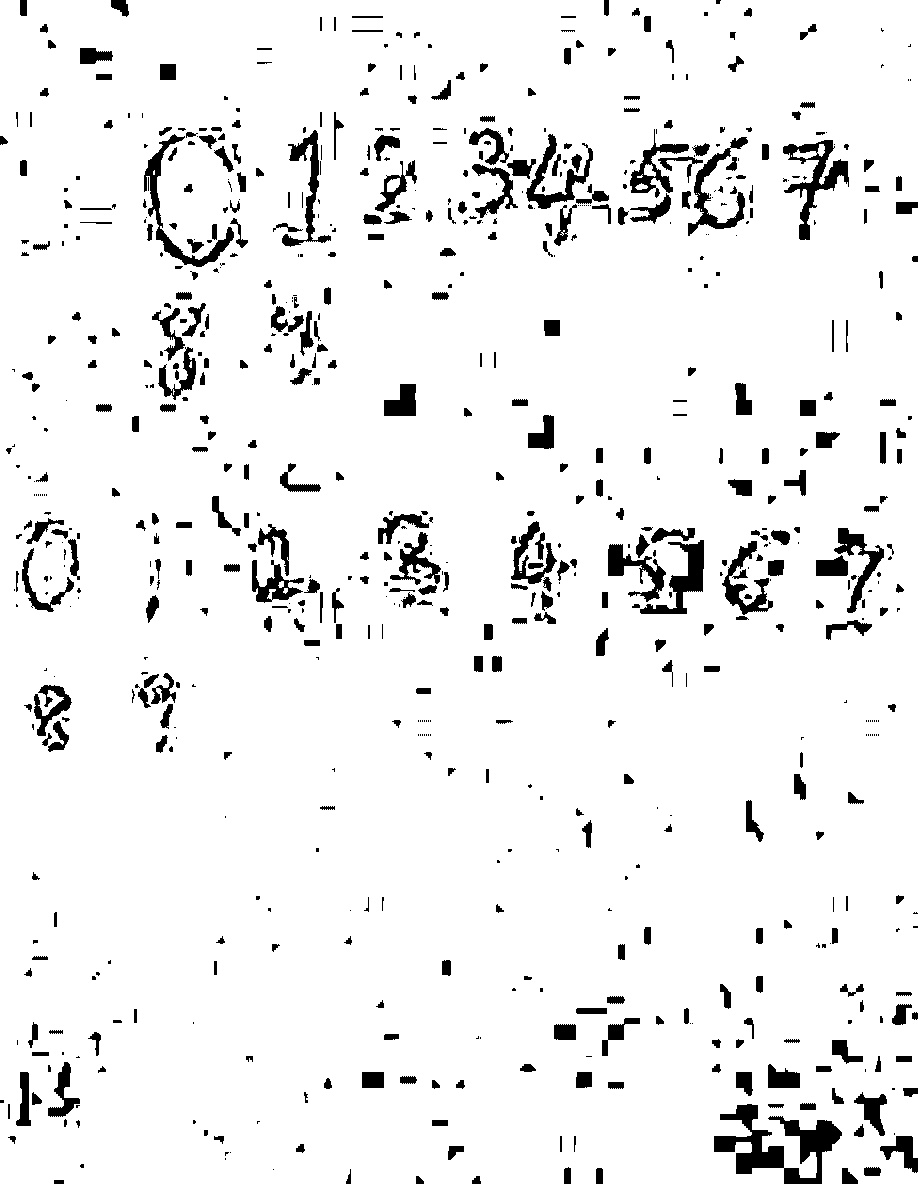 0 1 2 3 4 5 6 7
8 9
0 1 2 3 4 5 6 7
8 9
15